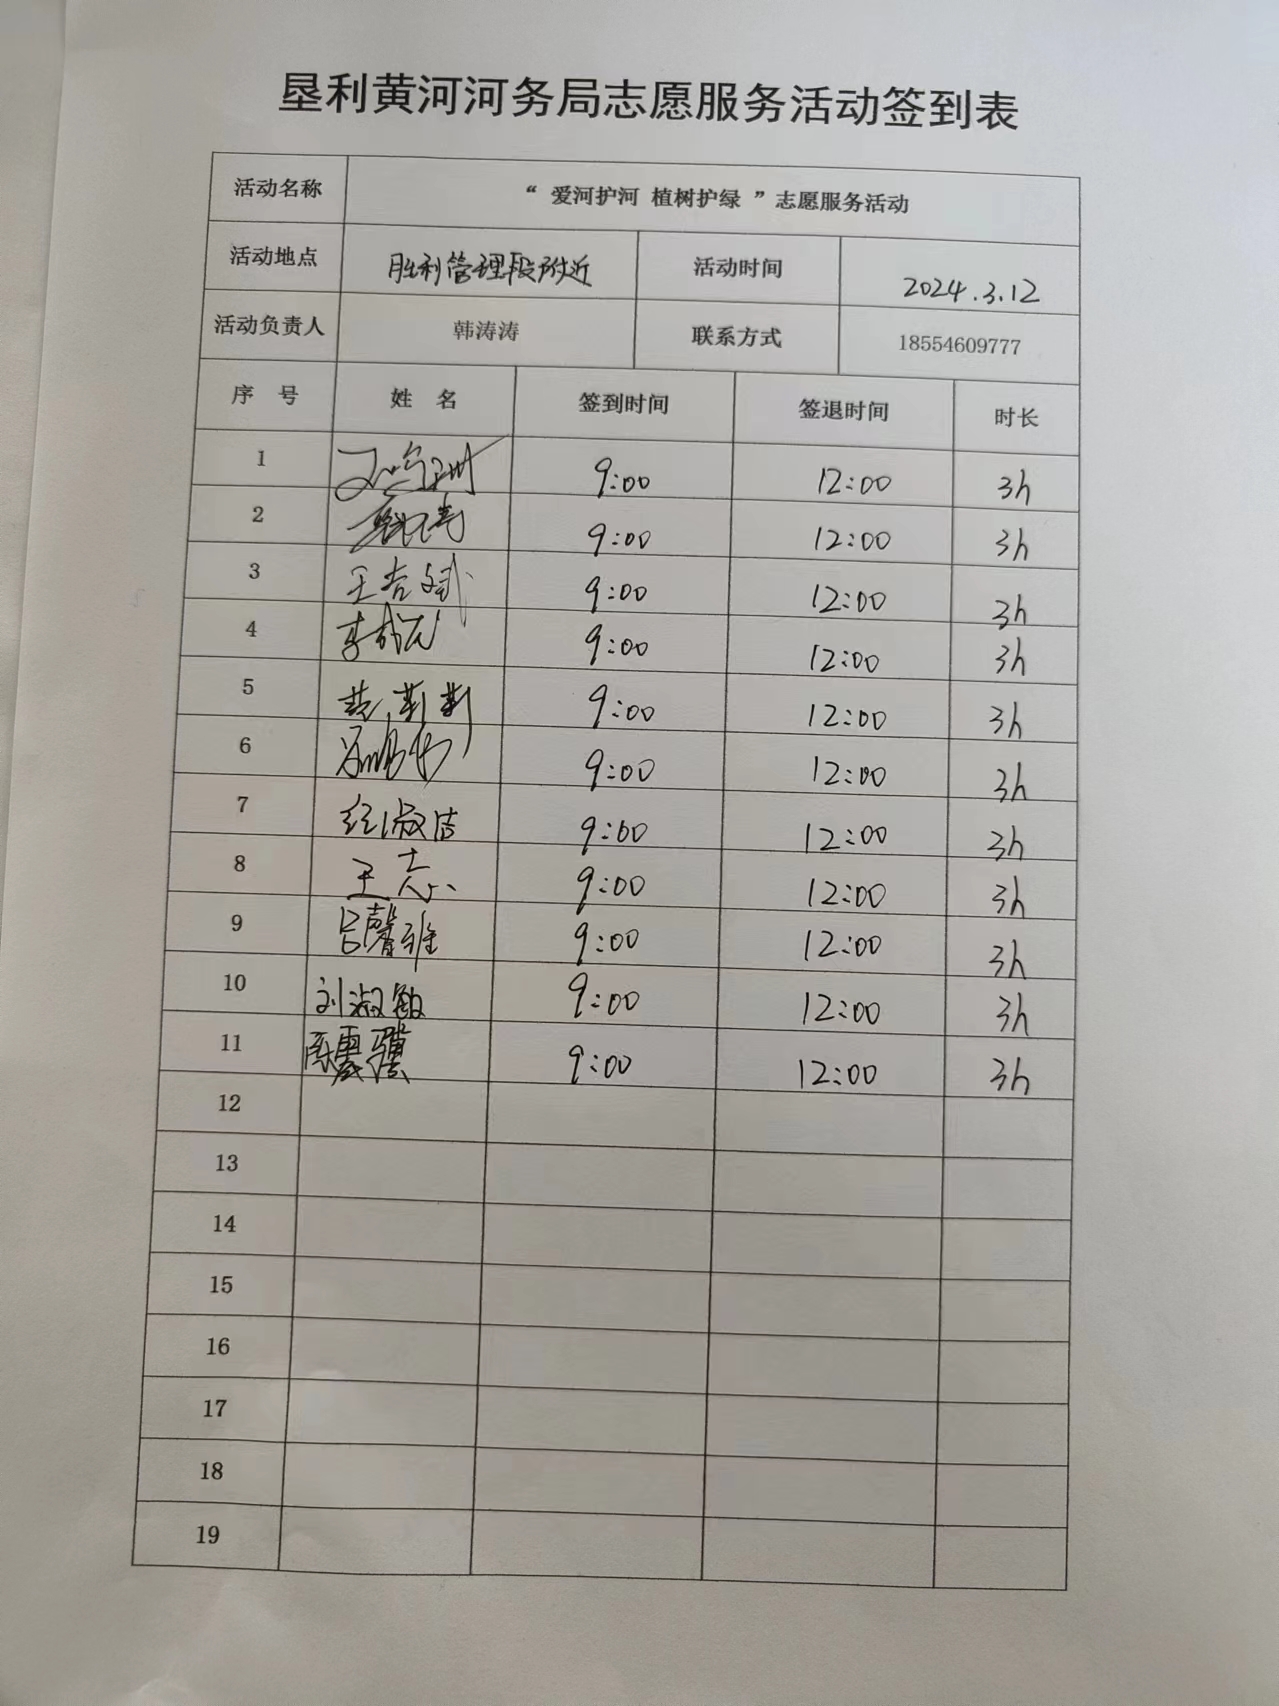 垦利黄河河务局志愿服务活动签到表
活动名称 “ 爱河护河 植树护绿 ”志愿服务活动
活动地点 胜利管理段附近 活动时间 2024.3.12
活动负责人 韩涛涛 联系方式 18554609777
序 号 姓 名 签到时间 签退时间 时长
1 9:00 12:00 3h
2 9:00 12:00 3h
3 王吉斌 9:00 12:00 3h
4 李 9:00 12:00 3h
5 黄莉莉 9:00 12:00 3h
6 9:00 12:00 3h
7 纪淑洁 9:00 12:00 3h
8 王志 9:00 12:00 3h
9 吕馨雅 9:00 12:00 3h
10 刘淑敏 9:00 12:00 3h
11 陈震骥 9:00 12:00 3h
12
13
14
15
16
17
18
19